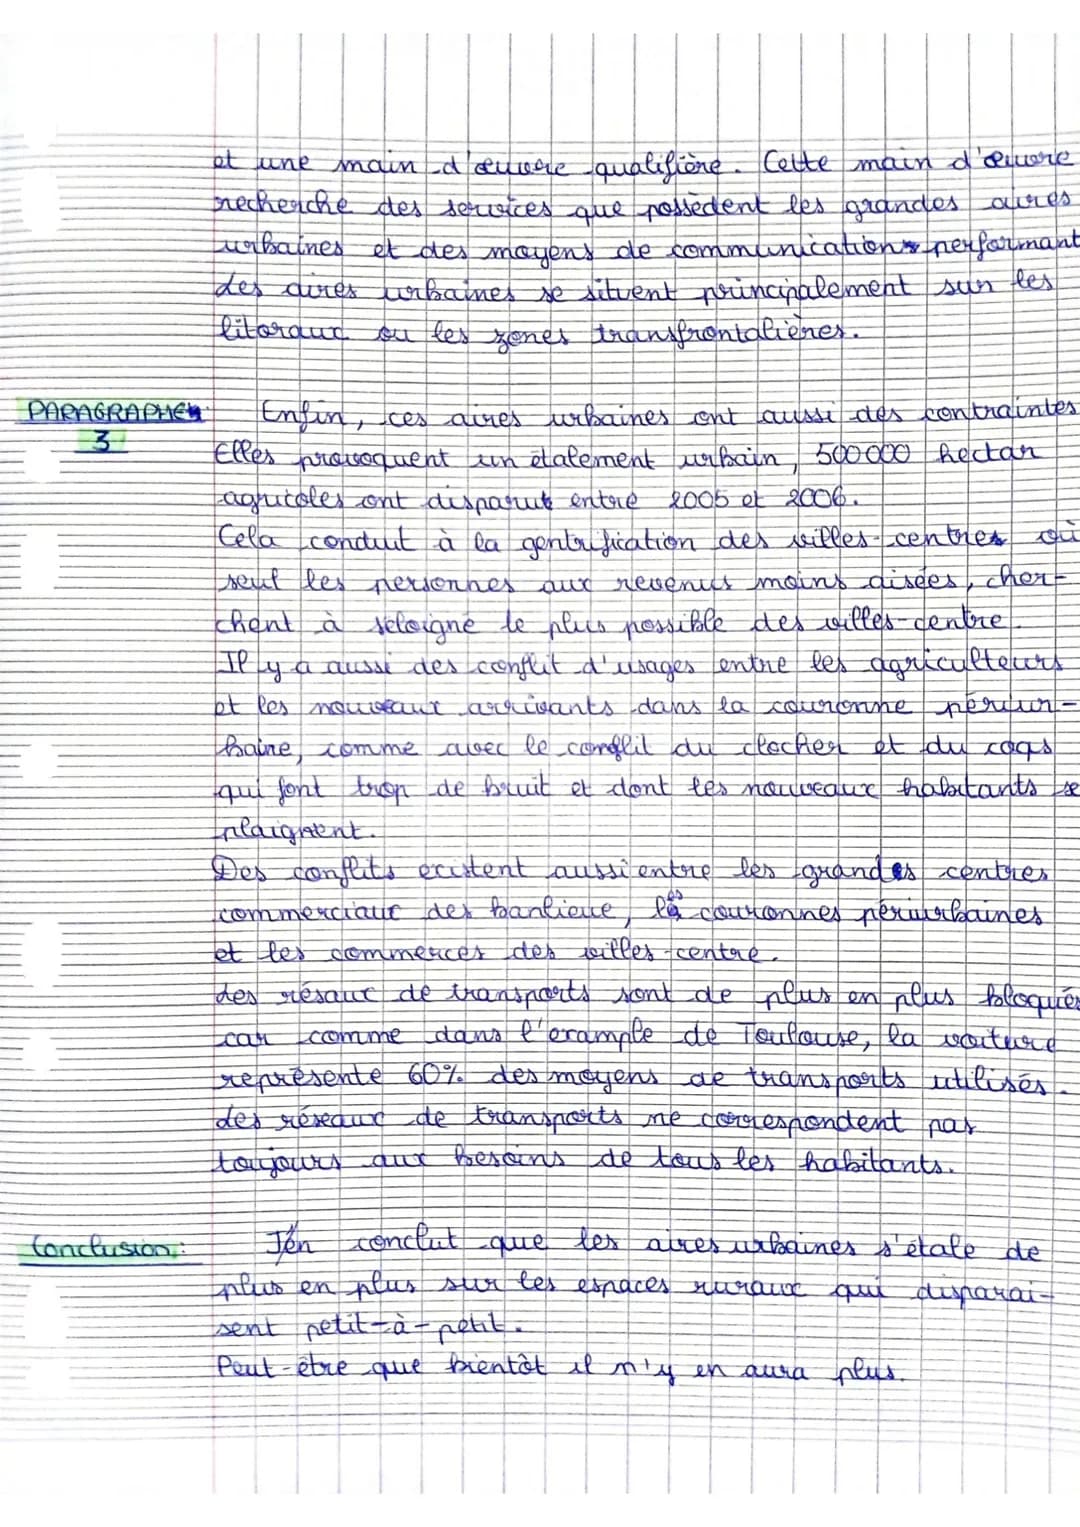 et une main d'œuvre qualifière. Cette main d'œuvre
recherche des services que possèdent les grandes aires
urbaines et des moyens de communications performant
des aires urbaines se situent principalement sur les
litoraux ou les zones transfrontalières.
PARAGRAPHE 3
Enfin, ces aires urbaines ont aussi des contraintes
Elles provoquent un étalement urbain, 500 000 hectar
agricoles ont disparut entre 2005 et 2006.
Cela conduit à la gentrification des villes-centres où
seul les personnes aux revenus moins aisées, cher-
chent à seloigné le plus possible des villes-centre.
Il y a aussi des conflit d'usages entre les agriculteurs
et les nouveaux arrivants dans la couronne périur-
baine, comme avec le conflit du clocher et du coqs
qui font trop de bruit et dont les nouveaux habitants se
plaignent.
Des conflits existent aussi entre les grandes centres
commerciaux des banlieue, les couronnes périurbaines
et les commerces des villes-centre.
des résaux de transports sont de plus en plus bloqués
car comme dans l'example de Toulouse, la voiture
représente 60% des moyens de transports utilisés.
des réseaux de transports ne correspondent pas
toujours aux besoins de tous les habitants.
Conclusion:
J'en conclut que les aires urbaines s'étale de
plus en plus sur les espaces ruraux qui disparai-
sent petit-à-petit.
Peut-être que bientôt il n'y en aura plus.